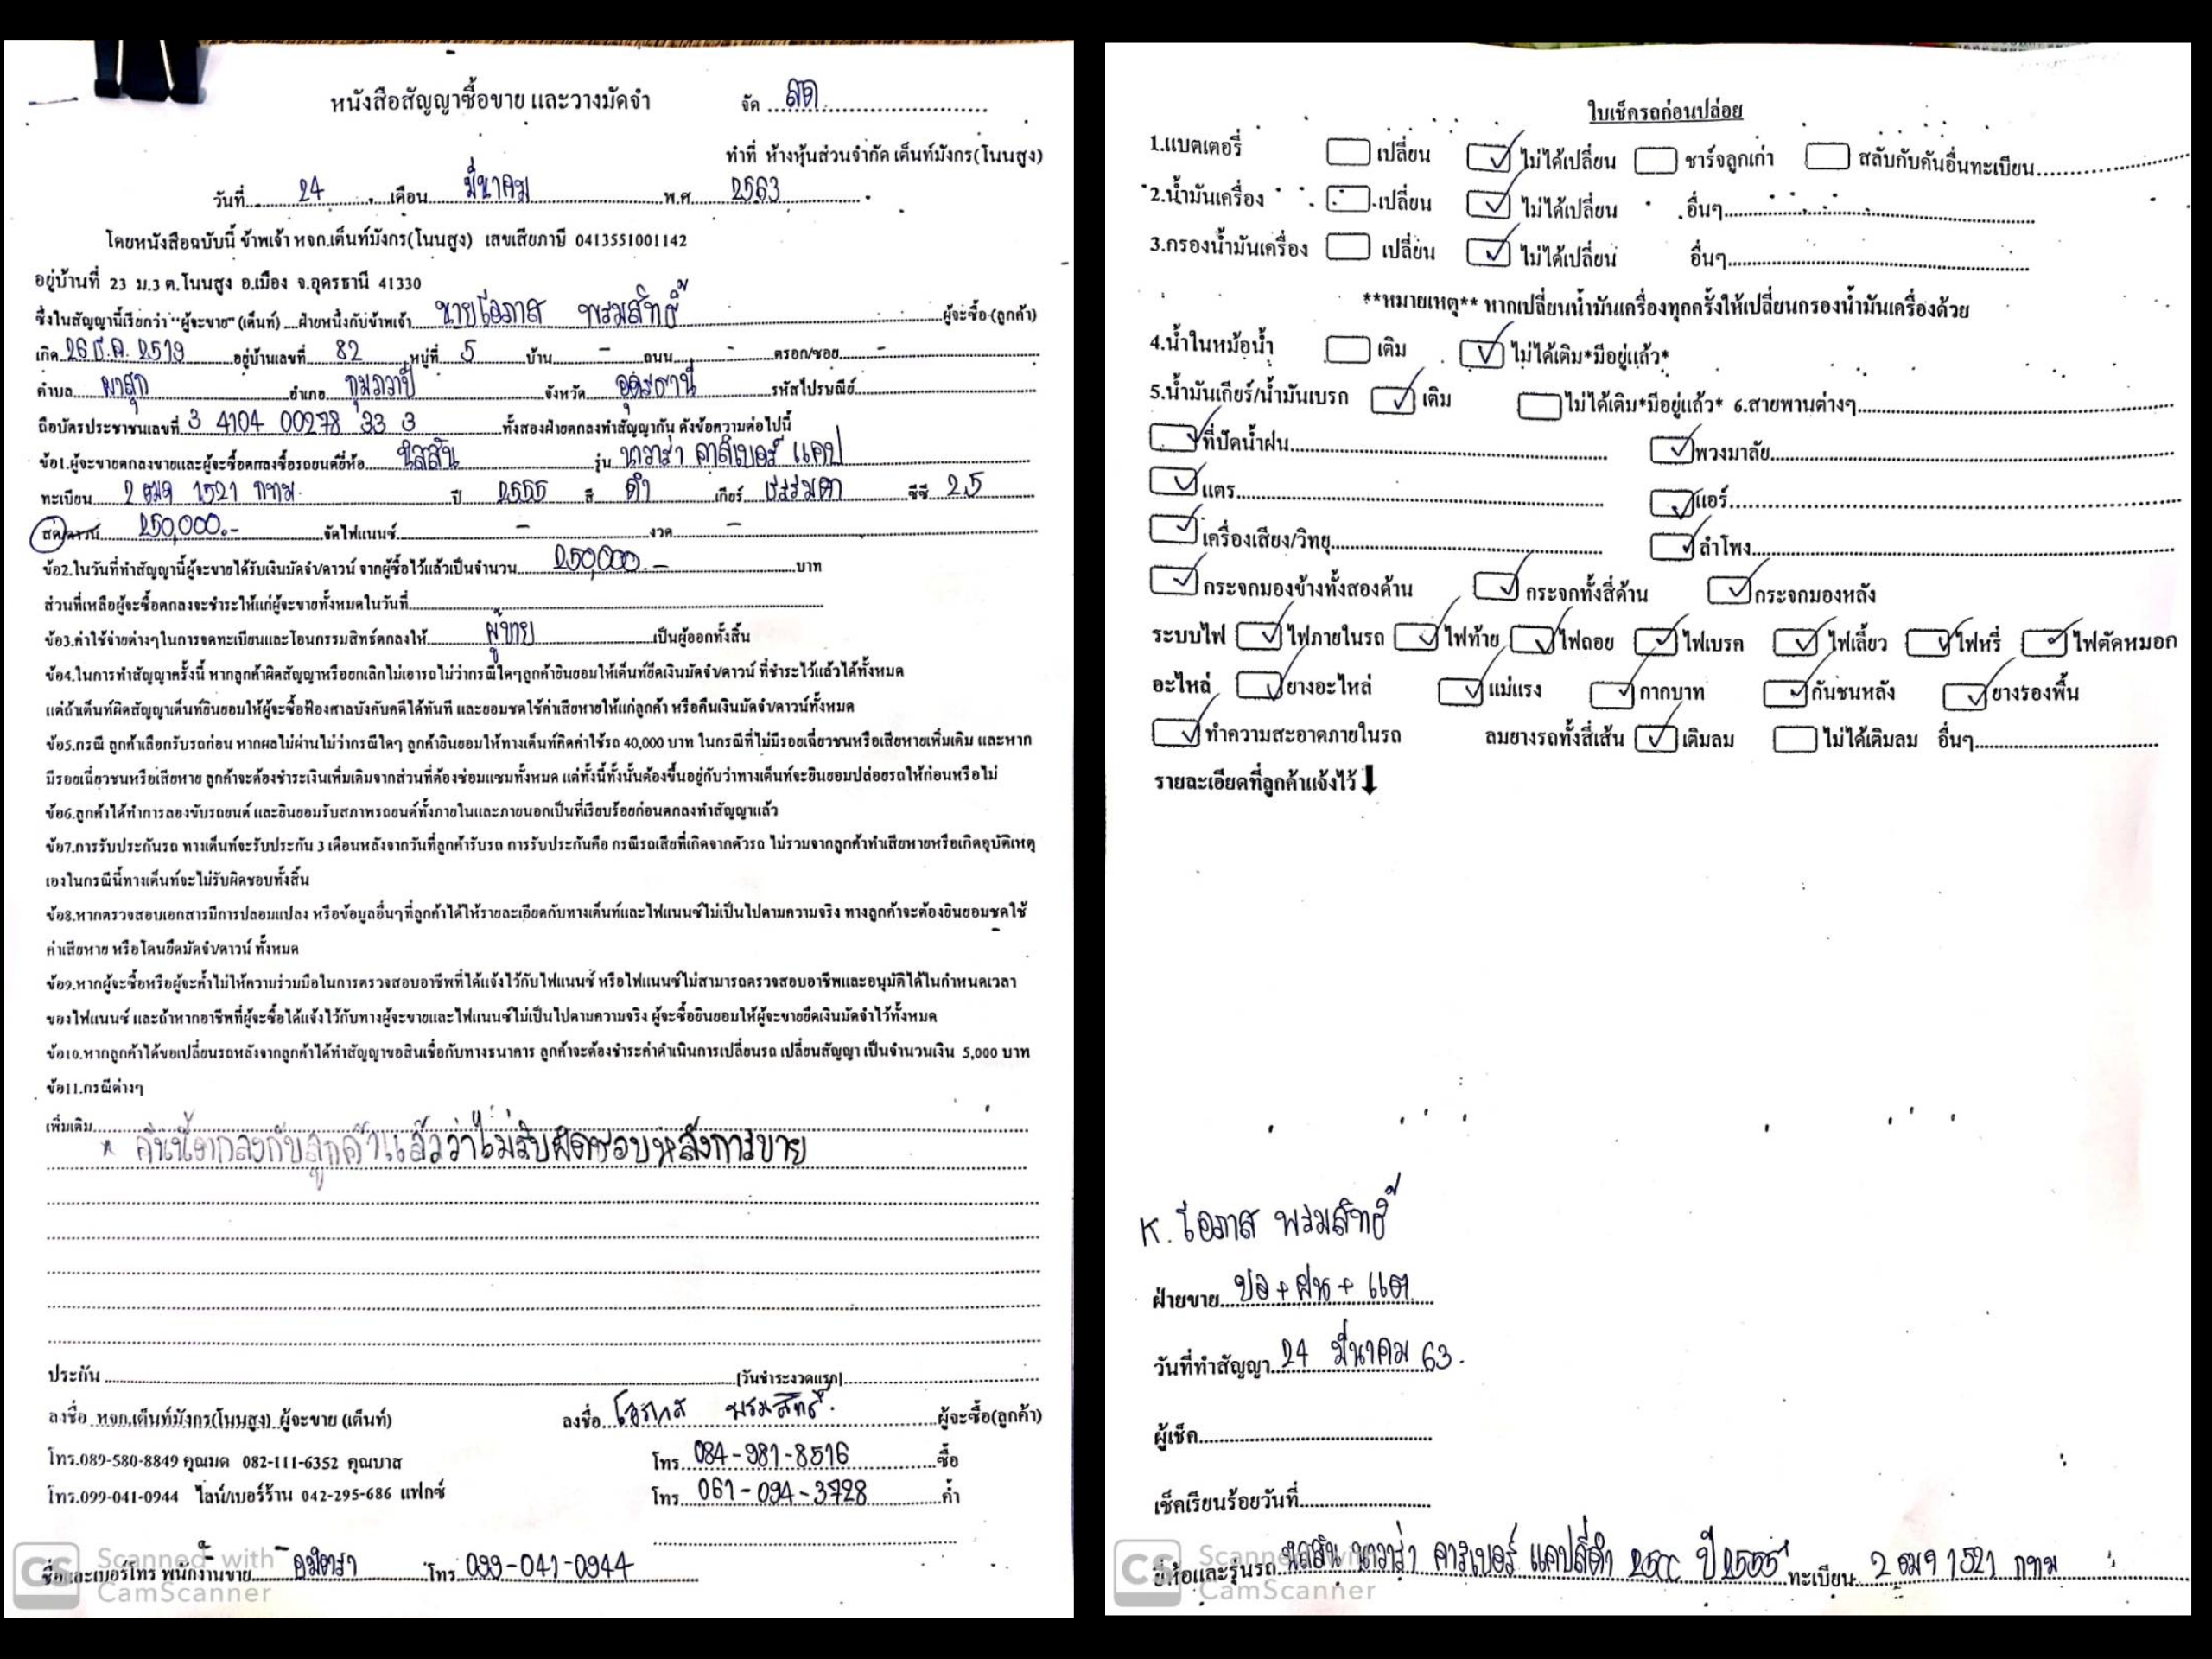 หนังสือสัญญาซื้อขาย และวางมัดจำ จัด สด
ทำที่ ห้างหุ้นส่วนจำกัด เต็นท์มังกร(โนนสูง)
วันที่ 24 เดือน มีนาคม พ.ศ. 2563
โดยหนังสือฉบับนี้ ข้าพเจ้า หจก.เต็นท์มังกร(โนนสูง) เลขเสียภาษี 0413551001142
อยู่บ้านที่ 23 ม.3 ต.โนนสูง อ.เมือง จ.อุดรธานี 41330
ซึ่งในสัญญานี้เรียกว่า "ผู้จะขาย" (เต็นท์) ....ฝ่ายหนึ่งกับข้าพเจ้า นายโอภาส พรมสิทธิ์ ผู้จะซื้อ (ลูกค้า)
เกิด 26 ธ.ค. 2519 อยู่บ้านเลขที่ 82 หมู่ที่ 5 บ้าน - ถนน - ตรอก/ซอย -
ตำบล ผาสุก อำเภอ กุมภวาปี จังหวัด อุดรธานี รหัสไปรษณีย์
ถือบัตรประชาชนเลขที่ 3 4104 00278 33 3 ทั้งสองฝ่ายตกลงทำสัญญากัน ดังข้อความต่อไปนี้
ข้อ1.ผู้จะขายตกลงขายและผู้จะซื้อตกลงซื้อรถยนต์ยี่ห้อ นิสสัน รุ่น นาวาร่า คาลิเบอร์ แคป
ทะเบียน 2 ฒฉ 1521 กทม. ปี 2555 สี ดำ เกียร์ ธรรมดา ซีซี 2.5
สด/ดาวน์ 250,000.- จัดไฟแนนซ์ - งวด -
ข้อ2.ในวันที่ทำสัญญานี้ผู้จะขายได้รับเงินมัดจำ/ดาวน์ จากผู้ซื้อไว้แล้วเป็นจำนวน 250,000.- บาท
ส่วนที่เหลือผู้จะซื้อตกลงจะชำระให้แก่ผู้จะขายทั้งหมดในวันที่
ข้อ3.ค่าใช้จ่ายต่างๆในการจดทะเบียนและโอนกรรมสิทธิ์ตกลงให้ ผู้ขาย เป็นผู้ออกทั้งสิ้น
ข้อ4.ในการทำสัญญาครั้งนี้ หากลูกค้าผิดสัญญาหรือยกเลิกไม่เอารถไม่ว่ากรณีใดๆลูกค้ายินยอมให้เต็นท์ยึดเงินมัดจำ/ดาวน์ ที่ชำระไว้แล้วได้ทั้งหมด
แต่ถ้าเต็นท์ผิดสัญญาเต็นท์ยินยอมให้ผู้จะซื้อฟ้องศาลบังคับคดีได้ทันที และยอมชดใช้ค่าเสียหายให้แก่ลูกค้า หรือคืนเงินมัดจำ/ดาวน์ทั้งหมด
ข้อ5.กรณี ลูกค้าเลือกรับรถก่อน หากผลไม่ผ่านไม่ว่ากรณีใดๆ ลูกค้ายินยอมให้ทางเต็นท์คิดค่าใช้รถ 40,000 บาท ในกรณีที่ไม่มีรอยเฉี่ยวชนหรือเสียหายเพิ่มเติม และหาก
มีรอยเฉี่ยวชนหรือเสียหาย ลูกค้าจะต้องชำระเงินเพิ่มเติมจากส่วนที่ต้องซ่อมแซมทั้งหมด แต่ทั้งนี้ทั้งนั้นต้องขึ้นอยู่กับว่าทางเต็นท์จะยินยอมปล่อยรถให้ก่อนหรือไม่
ข้อ6.ลูกค้าได้ทำการลองขับรถยนต์ และยินยอมรับสภาพรถยนต์ทั้งภายในและภายนอกเป็นที่เรียบร้อยก่อนตกลงทำสัญญาแล้ว
ข้อ7.การรับประกันรถ ทางเต็นท์จะรับประกัน 3 เดือนหลังจากวันที่ลูกค้ารับรถ การรับประกันคือ กรณีรถเสียที่เกิดจากตัวรถ ไม่รวมจากลูกค้าทำเสียหายหรือเกิดอุบัติเหตุ
เองในกรณีนี้ทางเต็นท์จะไม่รับผิดชอบทั้งสิ้น
ข้อ8.หากตรวจสอบเอกสารมีการปลอมแปลง หรือข้อมูลอื่นๆที่ลูกค้าได้ให้รายละเอียดกับทางเต็นท์และไฟแนนซ์ไม่เป็นไปตามความจริง ทางลูกค้าจะต้องยินยอมชดใช้
ค่าเสียหาย หรือโดนยึดมัดจำ/ดาวน์ ทั้งหมด
ข้อ9.หากผู้จะซื้อหรือผู้จะค้ำไม่ให้ความร่วมมือในการตรวจสอบอาชีพที่ได้แจ้งไว้กับไฟแนนซ์ หรือไฟแนนซ์ไม่สามารถตรวจสอบอาชีพและอนุมัติได้ในกำหนดเวลา
ของไฟแนนซ์ และถ้าหากอาชีพที่ผู้จะซื้อได้แจ้งไว้กับทางผู้จะขายและไฟแนนซ์ไม่เป็นไปตามความจริง ผู้จะซื้อยินยอมให้ผู้จะขายยึดเงินมัดจำไว้ทั้งหมด
ข้อ10.หากลูกค้าได้ขอเปลี่ยนรถหลังจากลูกค้าได้ทำสัญญาขอสินเชื่อกับทางธนาคาร ลูกค้าจะต้องชำระค่าดำเนินการเปลี่ยนรถ เปลี่ยนสัญญา เป็นจำนวนเงิน 5,000 บาท
ข้อ11.กรณีต่างๆ
เพิ่มเติม
* คันนี้ตกลงกับลูกค้าแล้วว่าไม่รับผิดชอบหลังการขาย
ประกัน [วันชำระงวดแรก]
ลงชื่อ หจก.เต็นท์มังกร(โนนสูง) ผู้จะขาย (เต็นท์) ลงชื่อ โอภาส พรมสิทธิ์ ผู้จะซื้อ(ลูกค้า)
โทร.089-580-8849 คุณมด 082-111-6352 คุณบาส โทร. 084-981-8516 ซื้อ
โทร.099-041-0944 ไลน์/เบอร์ร้าน 042-295-686 แฟกซ์ โทร. 061-094-3728 ค้ำ
ชื่อและเบอร์โทร พนักงานขาย โทร. 099-041-0944
CS Scanned with CamScanner
ใบเช็ครถก่อนปล่อย
1.แบตเตอรี่ เปลี่ยน ✓ ไม่ได้เปลี่ยน ชาร์จลูกเก่า สลับกับคันอื่นทะเบียน
2.น้ำมันเครื่อง เปลี่ยน ✓ ไม่ได้เปลี่ยน อื่นๆ
3.กรองน้ำมันเครื่อง เปลี่ยน ✓ ไม่ได้เปลี่ยน อื่นๆ
**หมายเหตุ** หากเปลี่ยนน้ำมันเครื่องทุกครั้งให้เปลี่ยนกรองน้ำมันเครื่องด้วย
4.น้ำในหม้อน้ำ เติม ✓ ไม่ได้เติม*มีอยู่แล้ว*
5.น้ำมันเกียร์/น้ำมันเบรก ✓ เติม ไม่ได้เติม*มีอยู่แล้ว* 6.สายพานต่างๆ
✓ ที่ปัดน้ำฝน ✓ พวงมาลัย
✓ แตร ✓ แอร์
✓ เครื่องเสียง/วิทยุ ✓ ลำโพง
✓ กระจกมองข้างทั้งสองด้าน ✓ กระจกทั้งสี่ด้าน ✓ กระจกมองหลัง
ระบบไฟ ✓ ไฟภายในรถ ✓ ไฟท้าย ✓ ไฟถอย ✓ ไฟเบรค ✓ ไฟเลี้ยว ✓ ไฟหรี่ ✓ ไฟตัดหมอก
อะไหล่ ✓ ยางอะไหล่ ✓ แม่แรง ✓ กากบาท ✓ กันชนหลัง ✓ ยางรองพื้น
✓ ทำความสะอาดภายในรถ ลมยางรถทั้งสี่เส้น ✓ เติมลม ไม่ได้เติมลม อื่นๆ
รายละเอียดที่ลูกค้าแจ้งไว้ ⬇
K. โอภาส พรมสิทธิ์
ฝ่ายขาย ปอ + ฝน + แต
วันที่ทำสัญญา 24 มีนาคม 63.
ผู้เช็ค
เช็คเรียบร้อยวันที่
ยี่ห้อและรุ่นรถ นิสสัน นาวาร่า คาริเบอร์ แคปสีดำ 25CC ปี 2555 ทะเบียน 2 ฒฉ 1521 กทม
CS Scanned with CamScanner